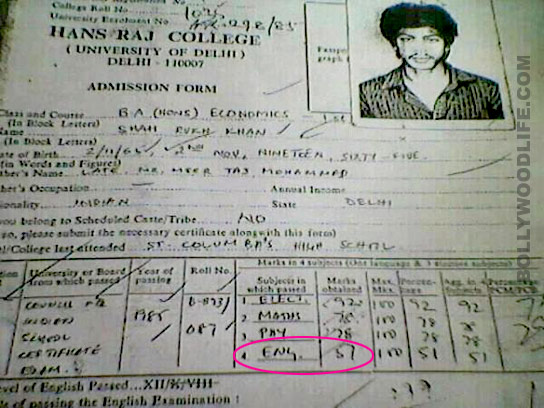 College Roll No.
University Enrolment No. 298/85
HANS RAJ COLLEGE
(UNIVERSITY OF DELHI)
DELHI - 110007
ADMISSION FORM
Class and Course B.A (HONS) ECONOMICS
(In Block Letters)
Name SHAH RUKH KHAN
(In Block Letters)
Date of Birth 2/11/65, 2nd NOV, NINETEEN, SIXTY-FIVE.
(in Words and Figures)
Father's Name LATE MR. MEER TAJ MOHAMMED
her's Occupation Annual Income
ionality INDIAN State DELHI
you belong to Scheduled Caste/Tribe NO
so, please submit the necessary certificate alongwith this form)
ol/College last attended ST. COLUMBA'S HIGH SCHOOL
Marks in 4 subjects (One language & 3 elective subjects)
University or Board from which passed Year of passing Roll No. Subjects in which passed Marks obtained Max. Percen-tage Agg. in 4 Subjects Percentage
COUNCIL 1. ELECT. 92 100 92 92
INDIAN 1985 2 MATHS 78 100 78 78
SCHOOL 087/ 3 PHY 78 100 78 78
CERTIFICATE 4 ENG. 51 100 51 51
EXAM.
Level of English Passed...XII/X/VIII
te of passing the English Examination :
BOLLYWOODLIFE.COM